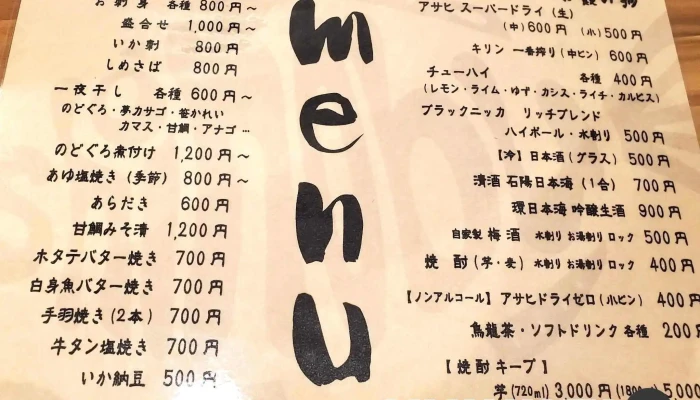 お刺身 各種 800円～
盛合せ 1,000円～
いか刺 800円
しめさば 800円
一夜干し 各種 600円～
のどぐろ・夢カサゴ・笹かれい
カマス・甘鯛・アナゴ…
のどぐろ煮付け 1,200円～
あゆ塩焼き(季節) 800円～
あらだき 600円
甘鯛みそ漬 1,200円
ホタテバター焼き 700円
白身魚バター焼き 700円
手羽焼き(2本) 700円
牛タン塩焼き 700円
いか納豆 500円
menu
アサヒ スーパードライ(生)
(中)600円 (小)500円
キリン 一番搾り(中ビン) 600円
チューハイ 各種 400円
(レモン・ライム・ゆず・カシス・ライチ・カルピス)
ブラックニッカ リッチブレンド
ハイボール・水割り 500円
【冷】日本酒(グラス) 500円
清酒 石陽日本海(1合) 700円
環日本海 吟醸生酒 900円
自家製 梅酒 水割り お湯割り ロック 500円
焼酎(芋・麦) 水割り お湯割り ロック 400円
【ノンアルコール】アサヒドライゼロ(小ビン) 400円
烏龍茶・ソフトドリンク 各種 200円
【焼酎キープ】
芋(720ml) 3,000円 (1800 5,000